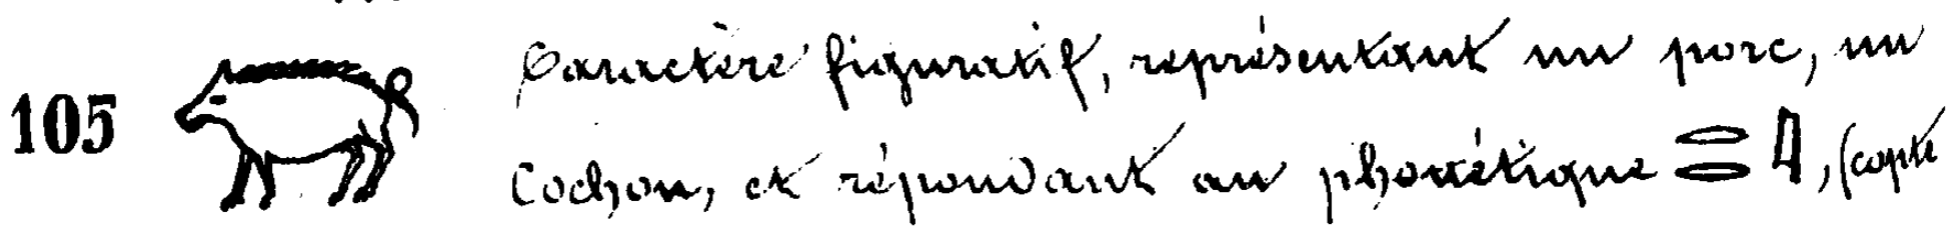 105 Caractère figuratif, représentant un porc, un
Cochon, et répondant au phonétique 𓂋𓂋𓇋, (copte